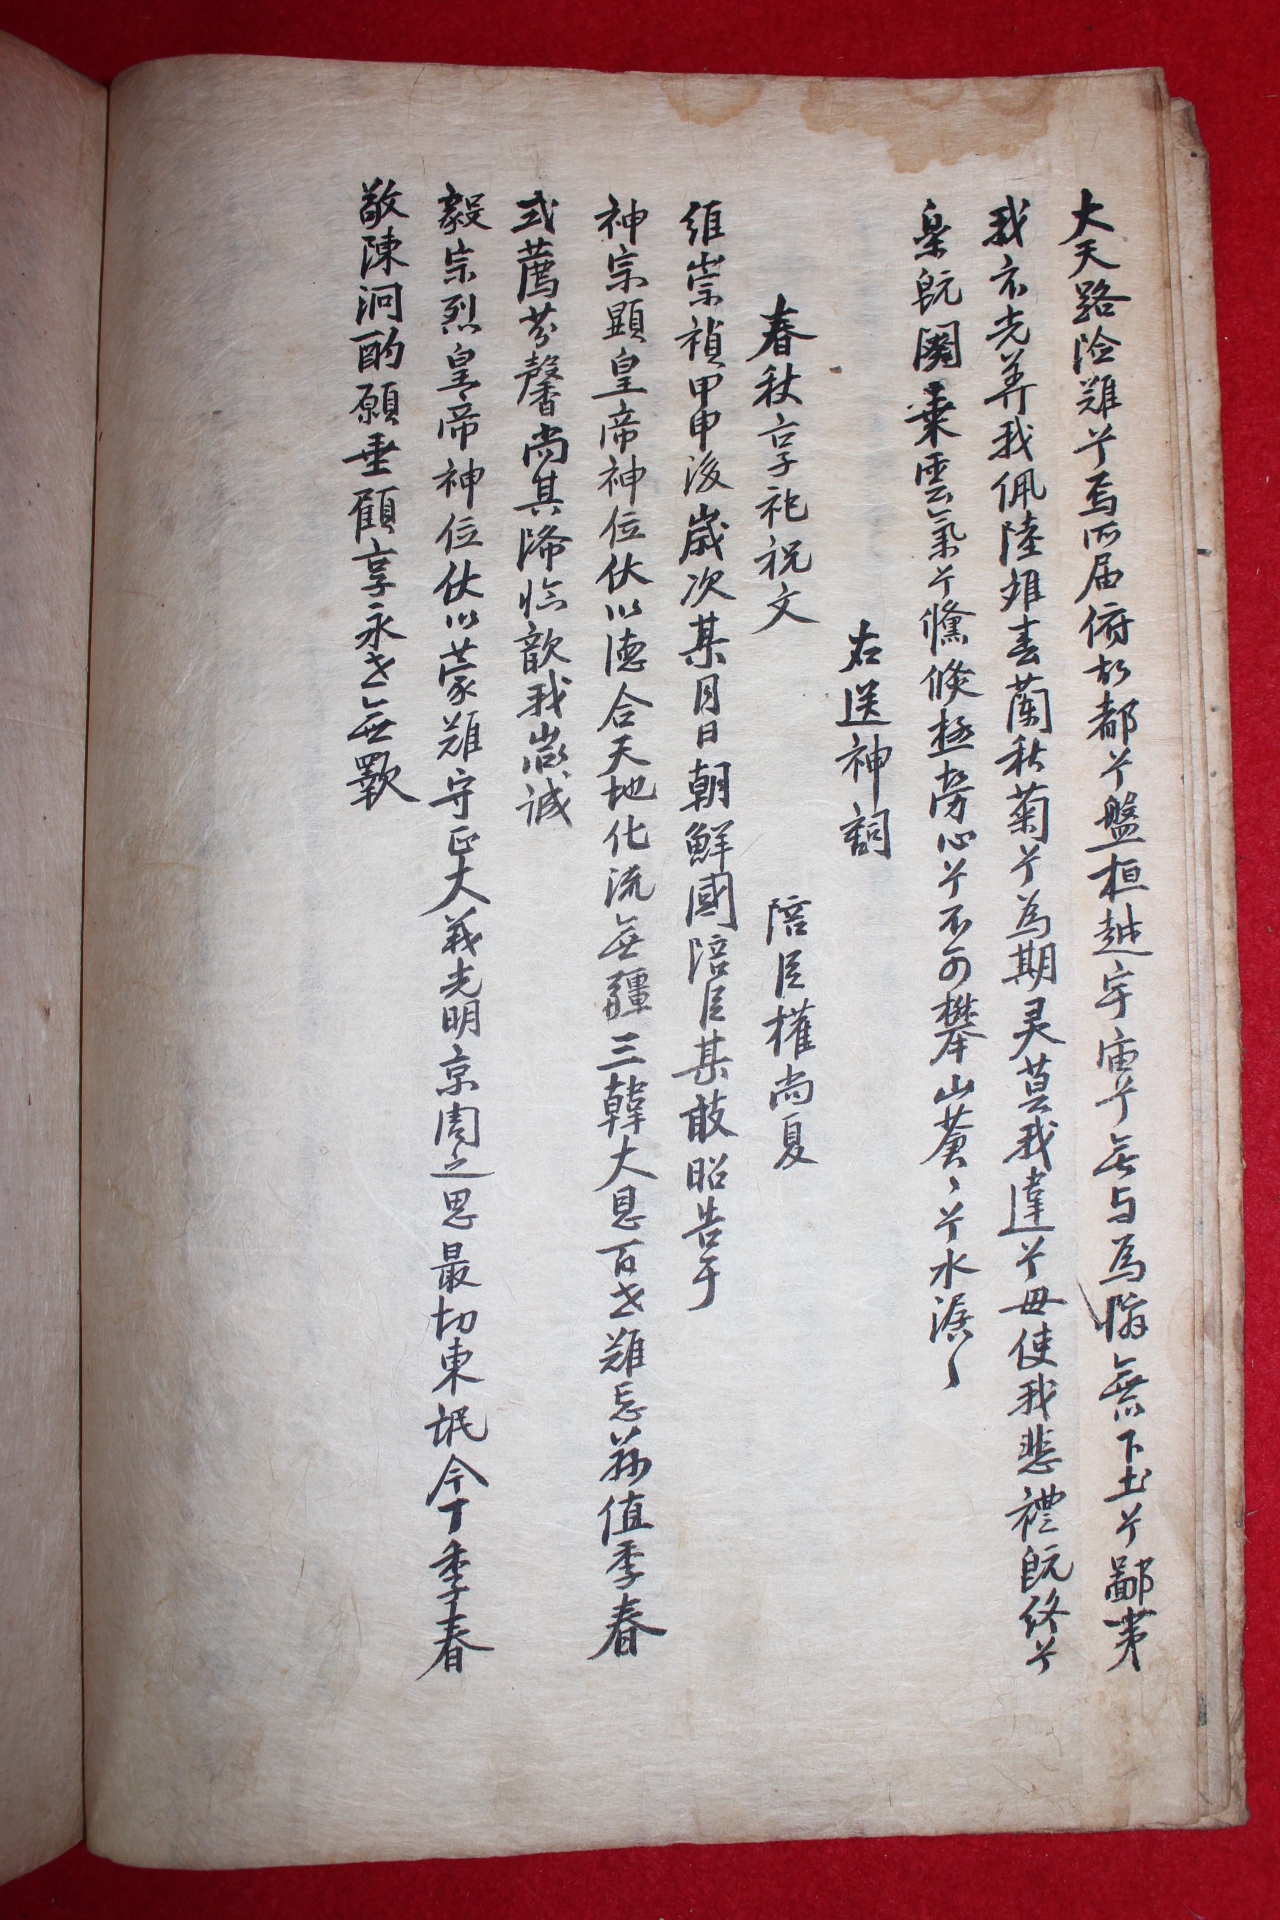 大天路险難兮焉所届俯故都兮盤桓越宇庙兮無与為憐無下土兮鄙第
我衣先荐我佩陸難春蘭秋菊兮為期灵莫我違兮毋使我悲禮既终兮
樂既闋乗雲氣兮儵倏極勞心兮不可攀山蒼〻兮水潺〻
右送神詞
春秋享祀祝文 陪臣權尚夏
維崇禎甲申後歲次某月日朝鮮國陪臣某敢昭告于
神宗顯皇帝神位伏以德合天地化流無疆三韓大恩百世難忘茲值季春
式薦芬馨尚其降臨歆我微誠
毅宗烈皇帝神位伏以蒙難守正大義光明京周之思最切東氓今丁季春
敬陳泂酌願垂顧享永世無斁